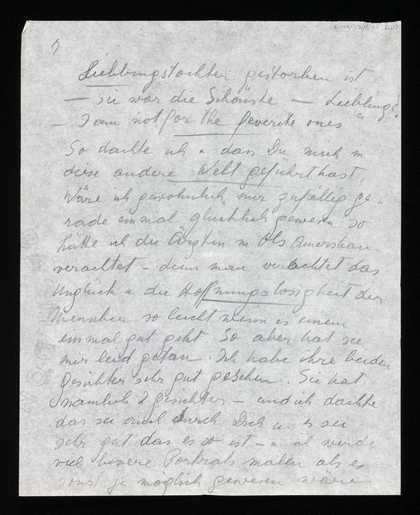 Lieblingstochter gestorben ist
— sie war die Schönste — Liebling"
— I am not for the feverite ones"
So dachte ich u dass Du mich in
diese andere Welt geführt hast.
Wäre ich gewöhnlich nur zufällig ge-
rade einmal glücklich gewesen so
hätte ich die Ärztin in
verachtet – denn man verachtet das
Unglück u die Hoffnungslosigkeit der
Menschen so leicht wenn es einem
einmal gut geht. So aber hat sie
mir leid getan. Ich habe ihre beiden
Gesichter sehr gut gesehen. Sie hat
nämlich 2 Gesichter – und ich dachte
das sei auch durch Dich u es sei
sehr gut das es so ist – u ich werde
viel bessere Portraits malen als es
sonst je möglich gewesen wäre